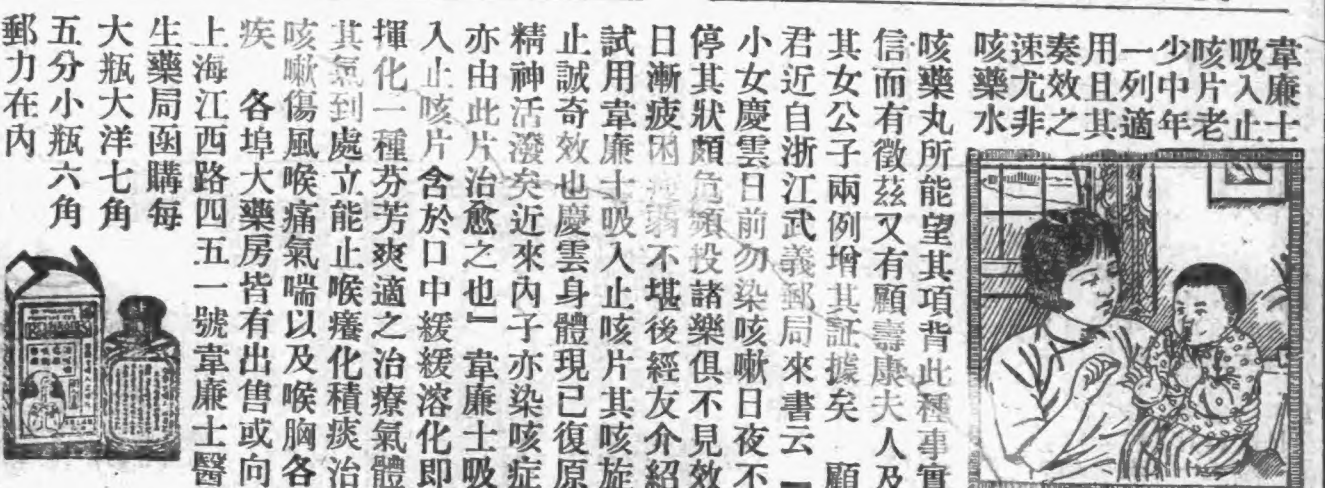 韋廉士
吸入止
咳片老
少中年
一列適
用且其
奏效之
速尤非
咳藥水
咳藥丸所能望其項背此種事實
信而有徵茲又有顧壽康夫人及
其女公子兩例增其証據矣　顧
君近自浙江武義郵局來書云『
小女慶雲日前勿染咳嗽日夜不
停其狀頗危頻投諸藥俱不見效
日漸疲困 弱不堪後經友介紹
試用韋廉士吸入止咳片其咳旋
止誠奇效也慶雲身體現已復原
精神活潑矣近來內子亦染咳症
亦由此片治愈之也』　韋廉士吸
入止咳片含於口中緩緩溶化即
揮化一種芬芳爽適之治療氣體
其氣到處立能止喉癢化積痰治
咳嗽傷風喉痛氣喘以及喉胸各
疾　各埠大藥房皆有出售或向
上海江西路四五一號韋廉士醫
生藥局函購每
大瓶大洋七角
五分小瓶六角
郵力在內